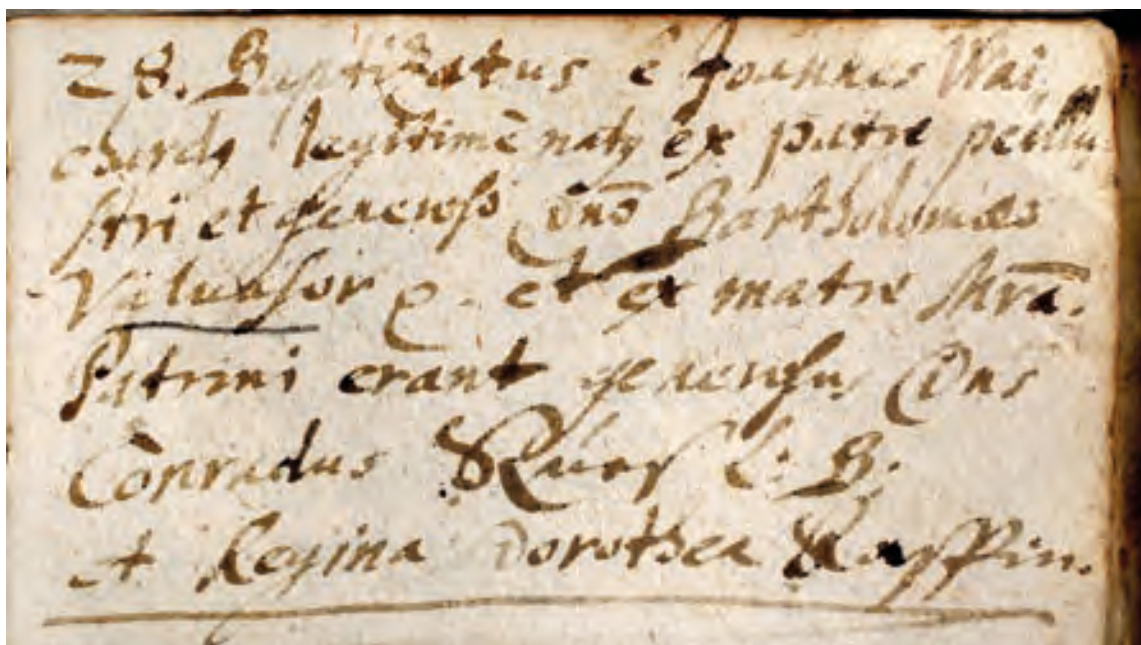 28. Baptizatus e Joannes Wai,
chardq legitimè natq ex patre peillu,
stri et generoso Dnō Bartholomæo
Valuasor et ex matre
Patrini erant generosq Dns
Conradus L: B:
et Regina Dorothea